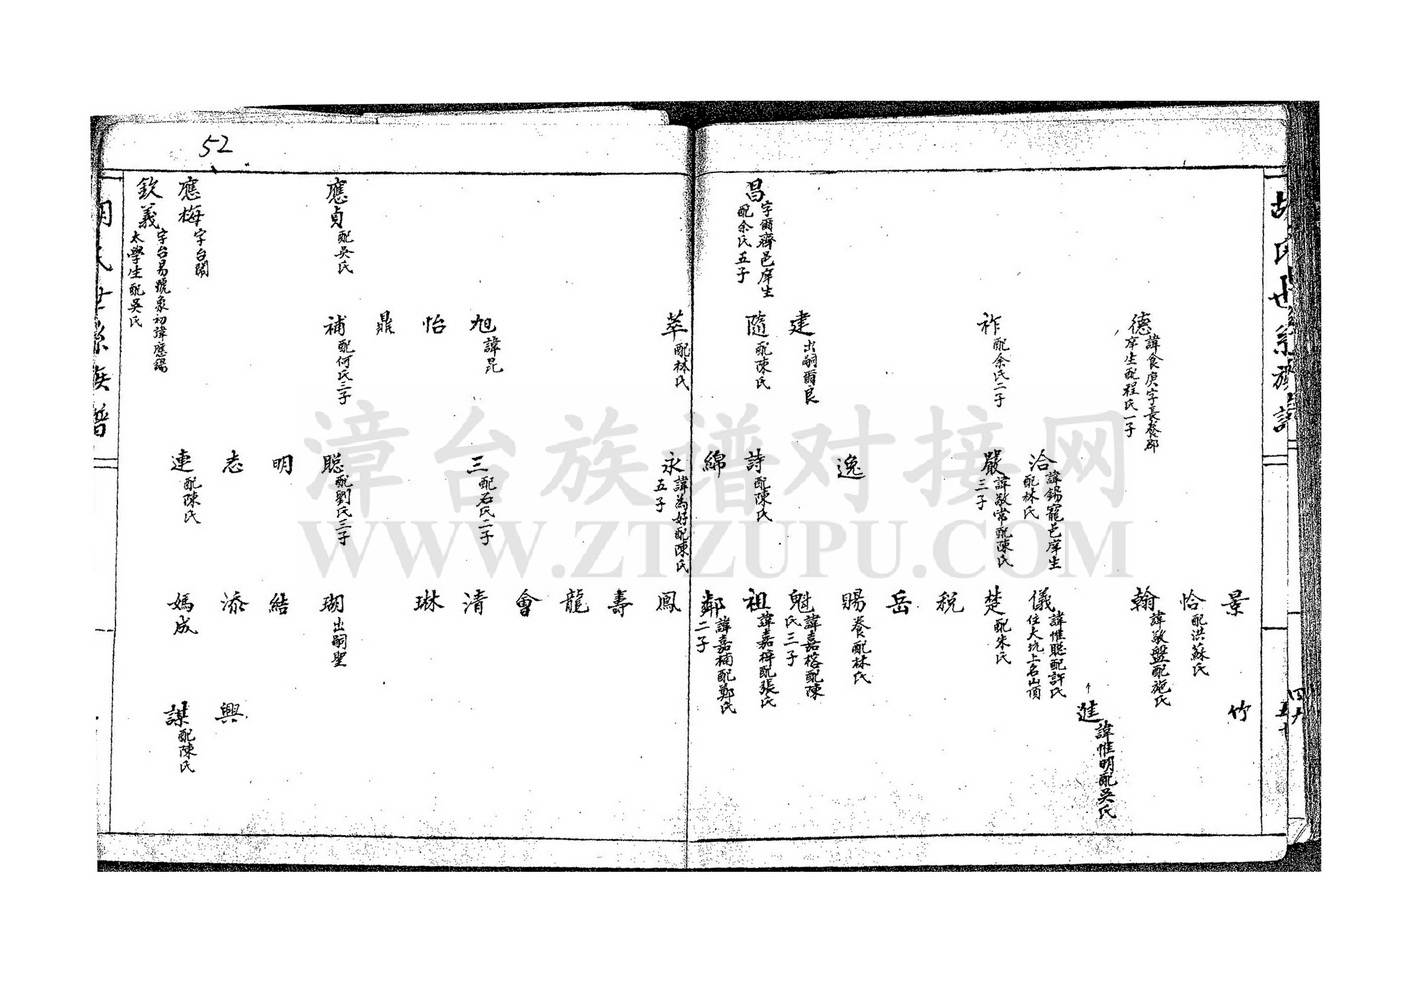 胡氏世系族譜
四九
五十
景
竹
恰 配洪蘇氏
德 諱食庚字長發郡
庠生配程氏一子
翰 諱敬盤配施氏
進 諱惟明配吳氏
洽 諱錫寵邑庠生
配林氏
儀 諱惟聰配許氏
住大坑上名山頂
祚 配余氏二子
嚴 諱敬常配陳氏
三子
楚 配朱氏
稅
岳
逸
賜 養配林氏
建 出嗣爾良
魁 諱嘉榕配陳
氏三子
昌 字爾齊邑庠生
配余氏五子
隨 配陳氏
詩 配陳氏
祖 諱嘉梓配張氏
綿
鄰 諱嘉楠配鄭氏
二子
萃 配林氏
永 諱為好配陳氏
五子
鳳
壽
龍
會
旭 諱昆
三 配石氏二子
清
怡
琳
鼎
應貞 配吳氏
補 配何氏三子
聰 配劉氏三子
瑚 出嗣聖
明
結
志
添
興
應梅 字台閣
連 配陳氏
媽成
謀 配陳氏
欽義 字台易號象初諱應錫
太學生配吳氏
胡氏世系族譜
52
漳台族谱对接网
WWW.ZTZUPU.COM